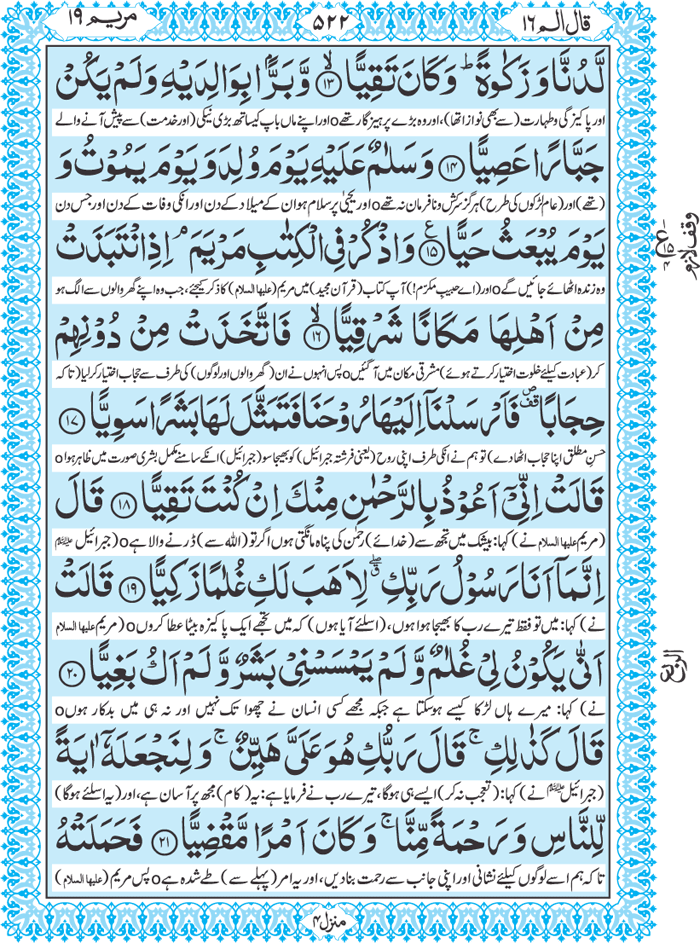 مريم ١٩
٥٢٢
قال الم ١٦
لَّدُنَّا وَزَكٰوةً ؕ وَكَانَ تَقِيًّا ۙ﴿۱۳﴾ وَّبَرًّۢا بِوَالِدَيْهِ وَلَمْ يَكُنْ
اور پاکیزگی و طہارت (سے بھی نوازا تھا)، اور وہ بڑے پرہیزگار تھے o اور اپنے ماں باپ کیساتھ بڑی نیکی (اور خدمت) سے پیش آنے والے
جَبَّارًا عَصِيًّا ﴿۱۴﴾ وَسَلٰمٌ عَلَيْهِ يَوْمَ وُلِدَ وَيَوْمَ يَمُوْتُ وَ
(تھے) اور (عام لڑکوں کی طرح) ہرگز سرکش و نافرمان نہ تھے o اور یحییٰ پر سلام ہو ان کے میلاد کے دن اور انکی وفات کے دن اور جس دن
يَوْمَ يُبْعَثُ حَيًّا ﴿۱۵﴾ ع وَاذْكُرْ فِي الْكِتٰبِ مَرْيَمَ ۘ اِذِ انْتَبَذَتْ
وہ زندہ اٹھائے جائیں گے o اور (اے حبیبِ مکرّم!) آپ کتاب (قرآن مجید) میں مریم (علیھا السلام) کا ذکر کیجئے، جب وہ اپنے گھر والوں سے الگ ہو
مِنْ اَهْلِهَا مَكَانًا شَرْقِيًّا ۙ﴿۱۶﴾ فَاتَّخَذَتْ مِنْ دُوْنِهِمْ
کر (عبادت کیلئے خلوت اختیار کرتے ہوئے) مشرقی مکان میں آگئیں o پس انہوں نے ان (گھر والوں اور لوگوں) کی طرف سے حجاب اختیار کر لیا (تاکہ
حِجَابًا ۪۟ فَاَرْسَلْنَاۤ اِلَيْهَا رُوْحَنَا فَتَمَثَّلَ لَهَا بَشَرًا سَوِيًّا ﴿۱۷﴾
حسنِ مطلق اپنا حجاب اٹھا دے) تو ہم نے انکی طرف اپنی روح (یعنی فرشتہ جبرائیل) کو بھیجا سو (جبرائیل) انکے سامنے مکمل بشری صورت میں ظاہر ہوا o
قَالَتْ اِنِّيْۤ اَعُوْذُ بِالرَّحْمٰنِ مِنْكَ اِنْ كُنْتَ تَقِيًّا ﴿۱۸﴾ قَالَ
(مریم علیھا السلام نے) کہا: بیشک میں تجھ سے (خدائے) رحمٰن کی پناہ مانگتی ہوں اگر تو (اللہ سے) ڈرنے والا ہے o (جبرائیل
اِنَّمَاۤ اَنَا رَسُوْلُ رَبِّكِ ۖ٘ لِاَهَبَ لَكِ غُلٰمًا زَكِيًّا ﴿۱۹﴾ قَالَتْ
نے) کہا: میں تو فقط تیرے رب کا بھیجا ہوا ہوں، (اسلئے آیا ہوں) کہ میں تجھے ایک پاکیزہ بیٹا عطا کروں o (مریم علیھا السلام
اَنّٰى يَكُوْنُ لِيْ غُلٰمٌ وَّلَمْ يَمْسَسْنِيْ بَشَرٌ وَّلَمْ اَكُ بَغِيًّا ﴿۲۰﴾
نے) کہا: میرے ہاں لڑکا کیسے ہوسکتا ہے جبکہ مجھے کسی انسان نے چھوا تک نہیں اور نہ ہی میں بدکار ہوں o
قَالَ كَذٰلِكِ ۚ قَالَ رَبُّكِ هُوَ عَلَيَّ هَيِّنٌ ۚ وَلِنَجْعَلَهٗۤ اٰيَةً
(جبرائیل نے) کہا: (تعجب نہ کر) ایسے ہی ہوگا، تیرے رب نے فرمایا ہے: یہ (کام) مجھ پر آسان ہے، اور (یہ اسلئے ہوگا)
لِّلنَّاسِ وَرَحْمَةً مِّنَّا ۚ وَكَانَ اَمْرًا مَّقْضِيًّا ﴿۲۱﴾ فَحَمَلَتْهُ
تاکہ ہم اسے لوگوں کیلئے نشانی اور اپنی جانب سے رحمت بنادیں، اور یہ امر (پہلے سے) طے شدہ ہے o پس مریم (علیھا السلام)
منزل ۴
وقف لازم
الربع